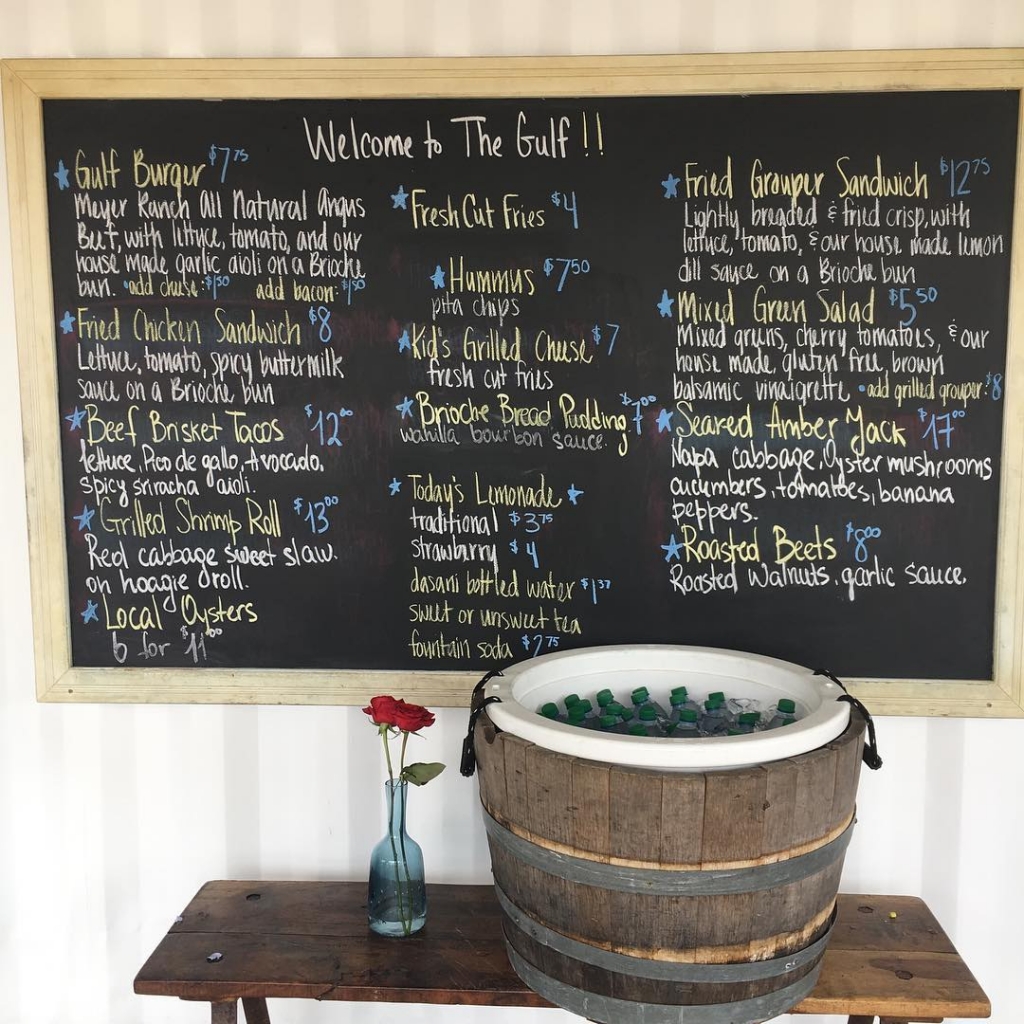 Welcome to The Gulf!!
Gulf Burger $7.75
Meyer Ranch All Natural Angus
Beef, with lettuce, tomato, and our
house made garlic aioli on a Brioche
bun. •add cheese: $1.50 add bacon: $1.50
Fried Chicken Sandwich $8
Lettuce, tomato, spicy buttermilk
sauce on a Brioche bun
Beef Brisket Tacos $12.00
lettuce, Pico de gallo, Avocado.
spicy sriracha aioli.
Grilled Shrimp Roll $13.00
Red cabbage sweet slaw.
on hoagie roll.
Local Oysters
6 for $11.00
Fresh Cut Fries $4
Hummus $7.50
pita chips
Kid's Grilled Cheese $7
fresh cut fries
Brioche Bread Pudding $7.00
vanilla bourbon sauce.
Today's Lemonade
traditional $3.75
strawberry $4
dasani bottled water $1.37
sweet or unsweet tea
fountain soda $2.75
Fried Grouper Sandwich $12.75
Lightly breaded & fried crisp, with
lettuce, tomato, & our house made lemon
dill sauce on a Brioche bun
Mixed Green Salad $5.50
Mixed greens, cherry tomatoes, & our
house made, gluten free, brown
balsamic vinaigrette •add grilled grouper: $8
Seared Amber Jack $17.00
Napa cabbage, Oyster mushrooms
cucumbers, tomatoes, banana
peppers.
Roasted Beets $8.00
Roasted Walnuts, garlic sauce.